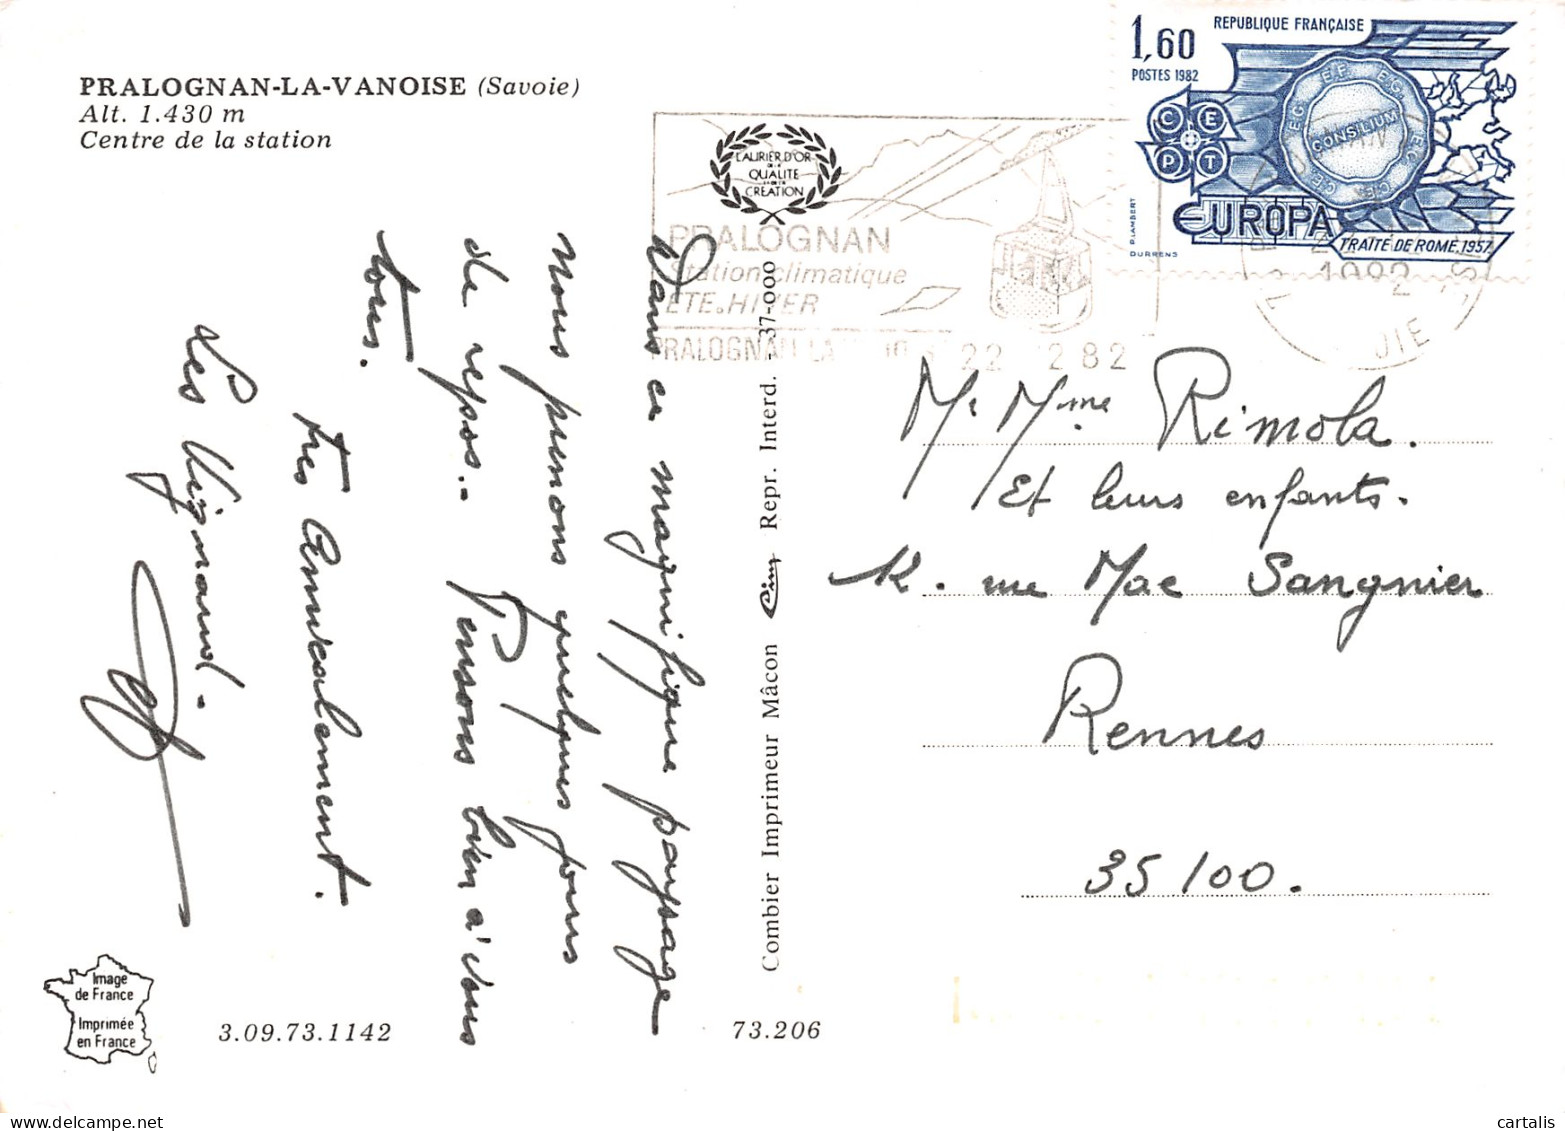 PRALOGNAN-LA-VANOISE (Savoie)
Alt. 1.430 m
Centre de la station
LAURIER D'OR
DE LA
QUALITÉ
CRÉATION
PRALOGNAN
Station climatique
ÉTÉ. HIVER
PRALOGNAN LA
22 282
1,60
REPUBLIQUE FRANÇAISE
POSTES 1982
CEPT
CONSILIUM
EUROPA
TRAITÉ DE ROME. 1957
P. LAMBERT
DURRENS
1982
Dans ce magnifique paysage
nous prenons quelques jours
de repos.- Pensons bien à vous
tous.
très amicalement.
Les Vignaud.-
Mr Mme Rimola.
Et leurs enfants.
rue Mac Sangnier
Rennes
35100.
Combier Imprimeur Mâcon Cim Repr. Interd. - 37-000
Image
de France
Imprimée
en France
3.09.73.1142
73.206
cartalis
www.delcampe.net